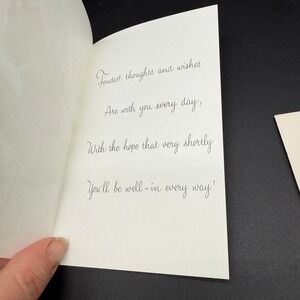 Fondest thoughts and wishes
Are with you every day,
With the hope that very shortly
You'll be well - in every way!